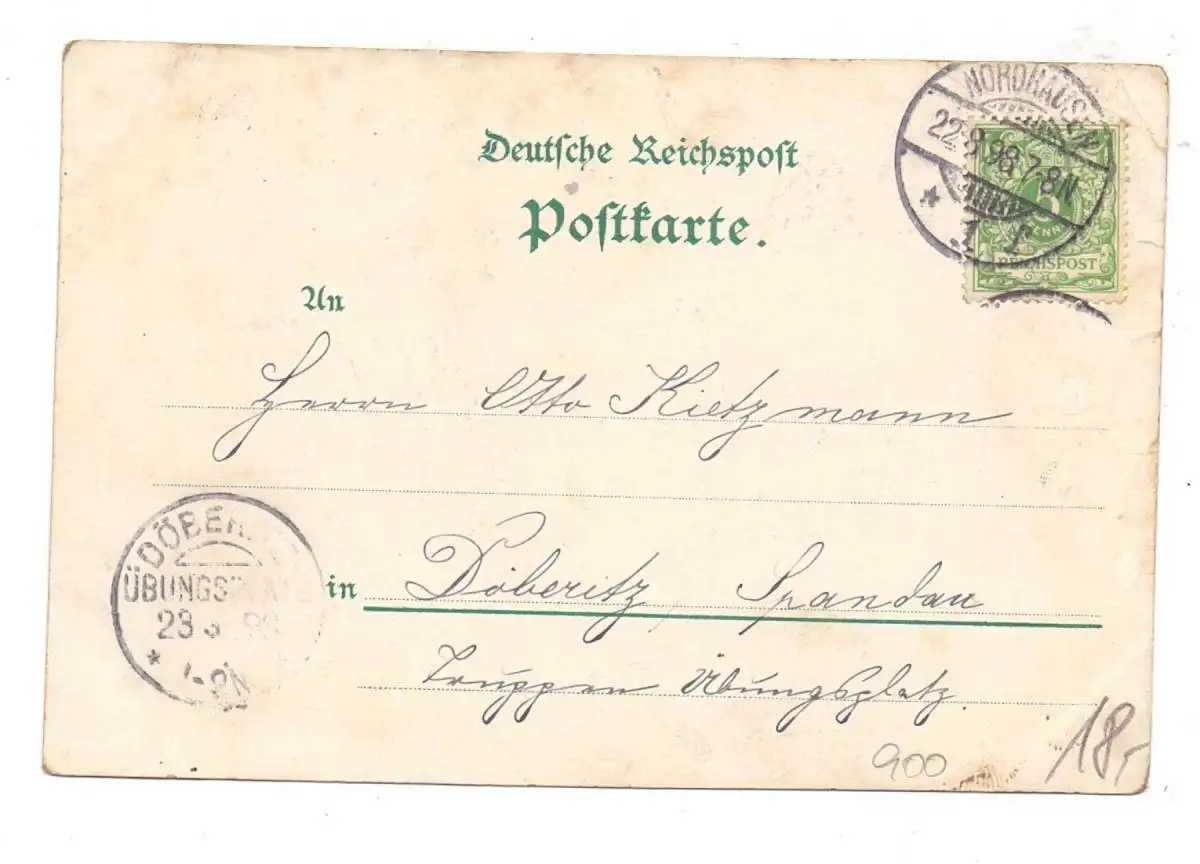 Deutsche Reichspost
Postkarte.
NORDHAUSEN
22.8.98.7-8N.
* 1 f
5
PFENNIG
REICHSPOST
An
Herrn Otto Kietzmann
DÖBERITZ
ÜBUNGSPLATZ
23 8 98
*
in Döberitz Spandau
Truppen Übungsplatz.
900
18,-